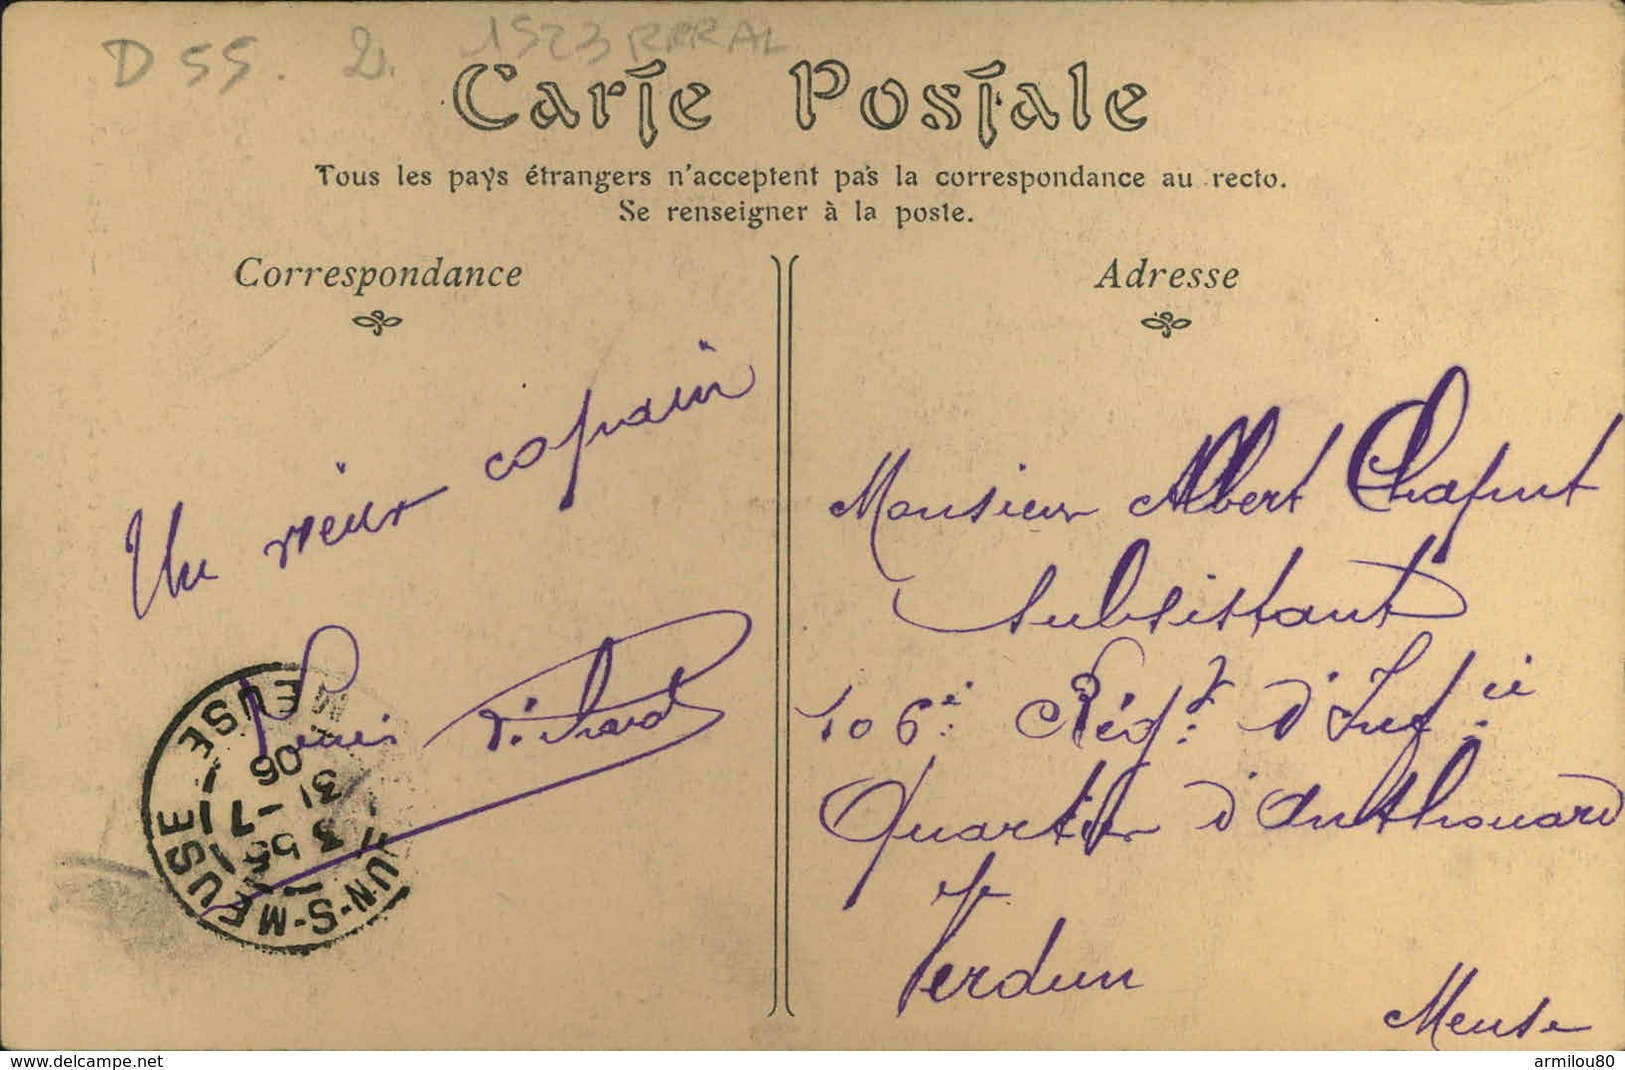 D 55. 2. 1523 RRRAL
Carte Postale
Tous les pays étrangers n'acceptent pas la correspondance au recto.
Se renseigner à la poste.
Correspondance
Un vieux copain
Louis Richard
MEUSE
06
31 -7
3 55
UN-S-MEUSE
Adresse
Monsieur Albert Chaput
Subsistant
106e Régt d'Infie
Quartier d'Anthouard
Verdun
Meuse
delcampe.net
armilou80